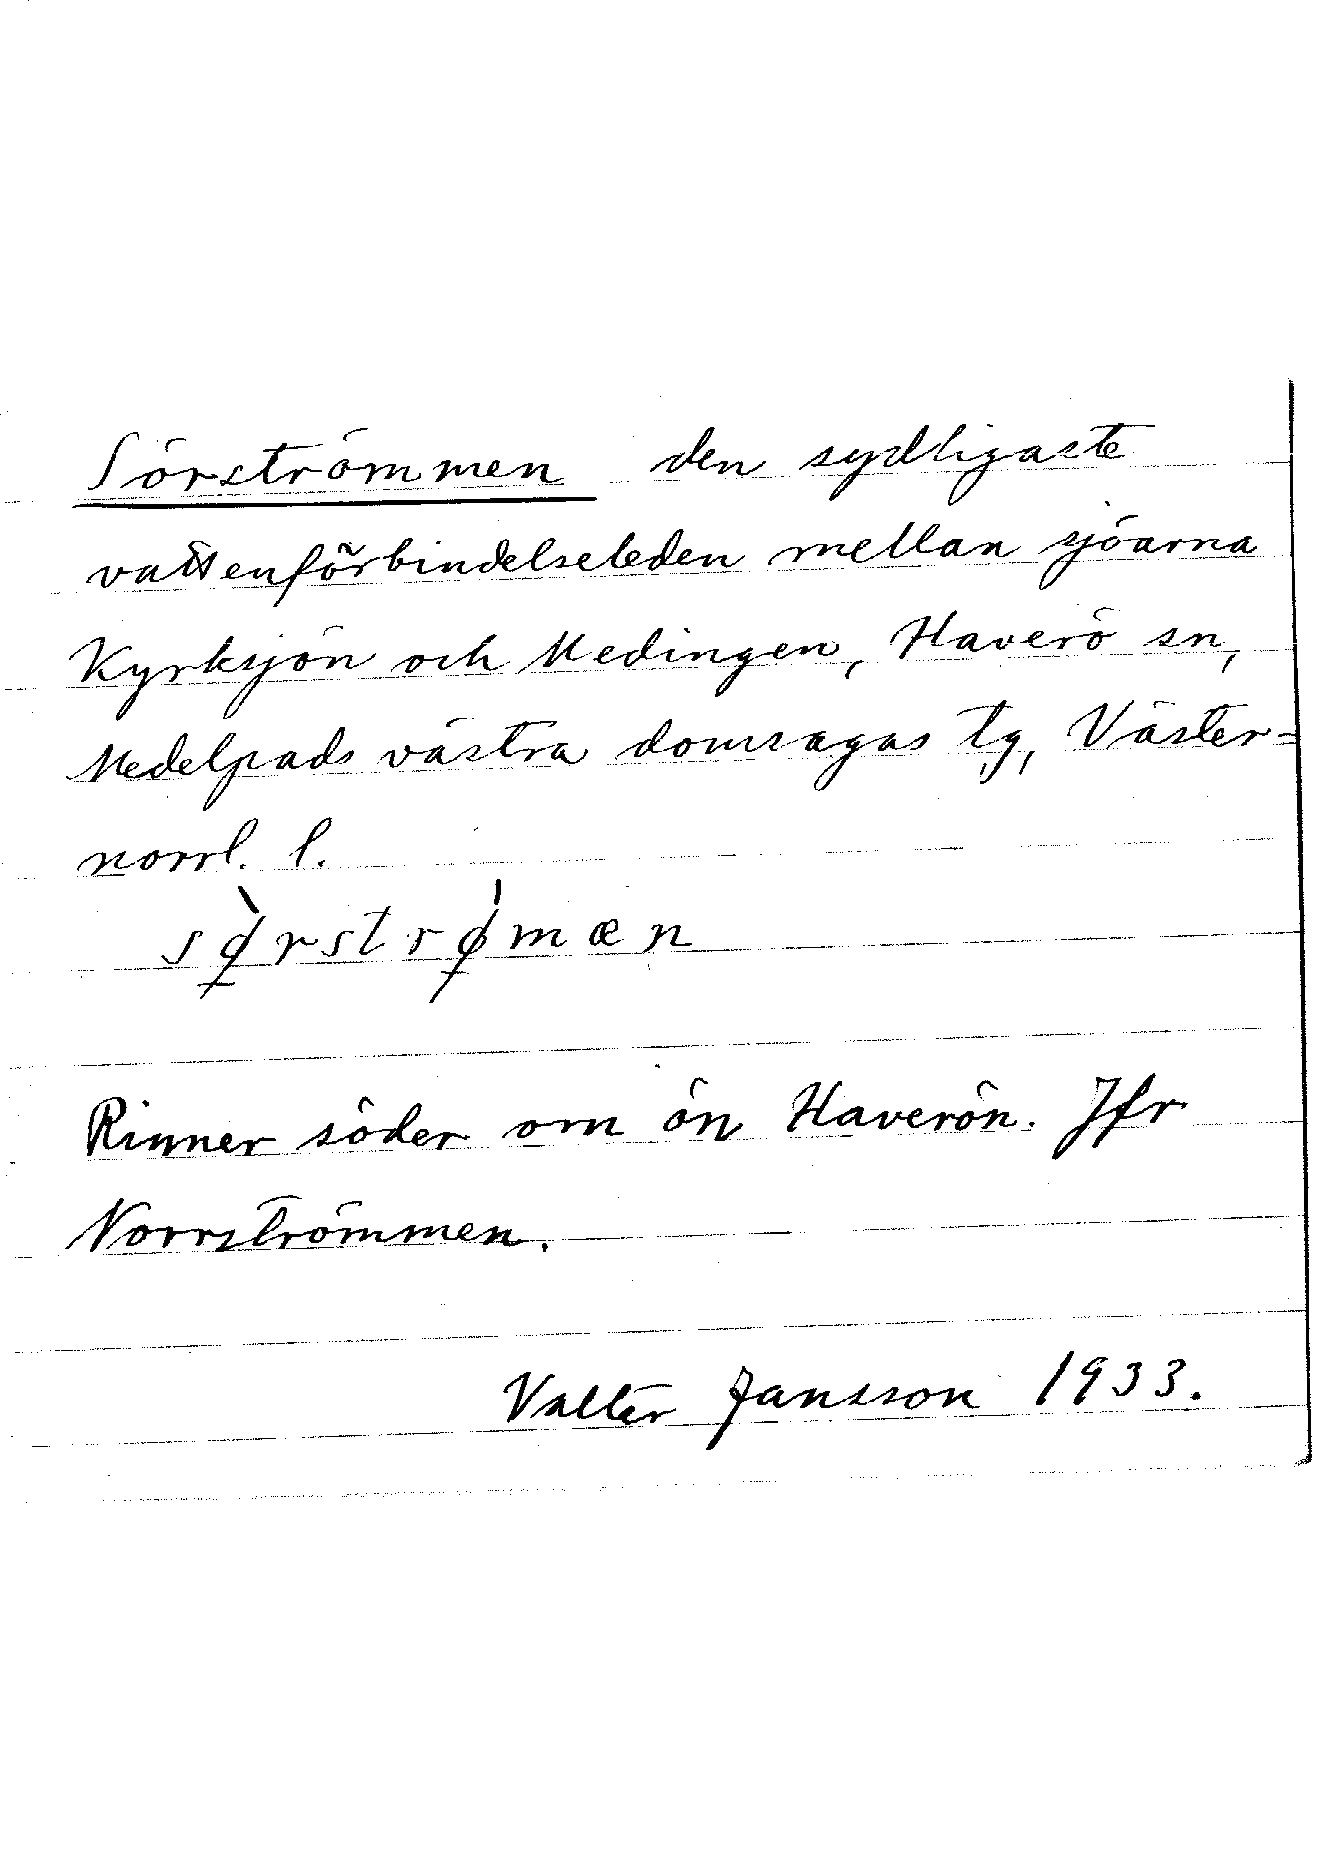 Sörströmmen den sydligaste
vattenförbindelseleden mellan sjöarna
Kyrksjön och Medingen, Haverö sn,
Medelpads västra domsagas tg, Väster=
norrl. l.
sø̀rstrǿmæn
Rinner söder om ön Haverön. Jfr
Norrströmmen.
Valter Jansson 1933.